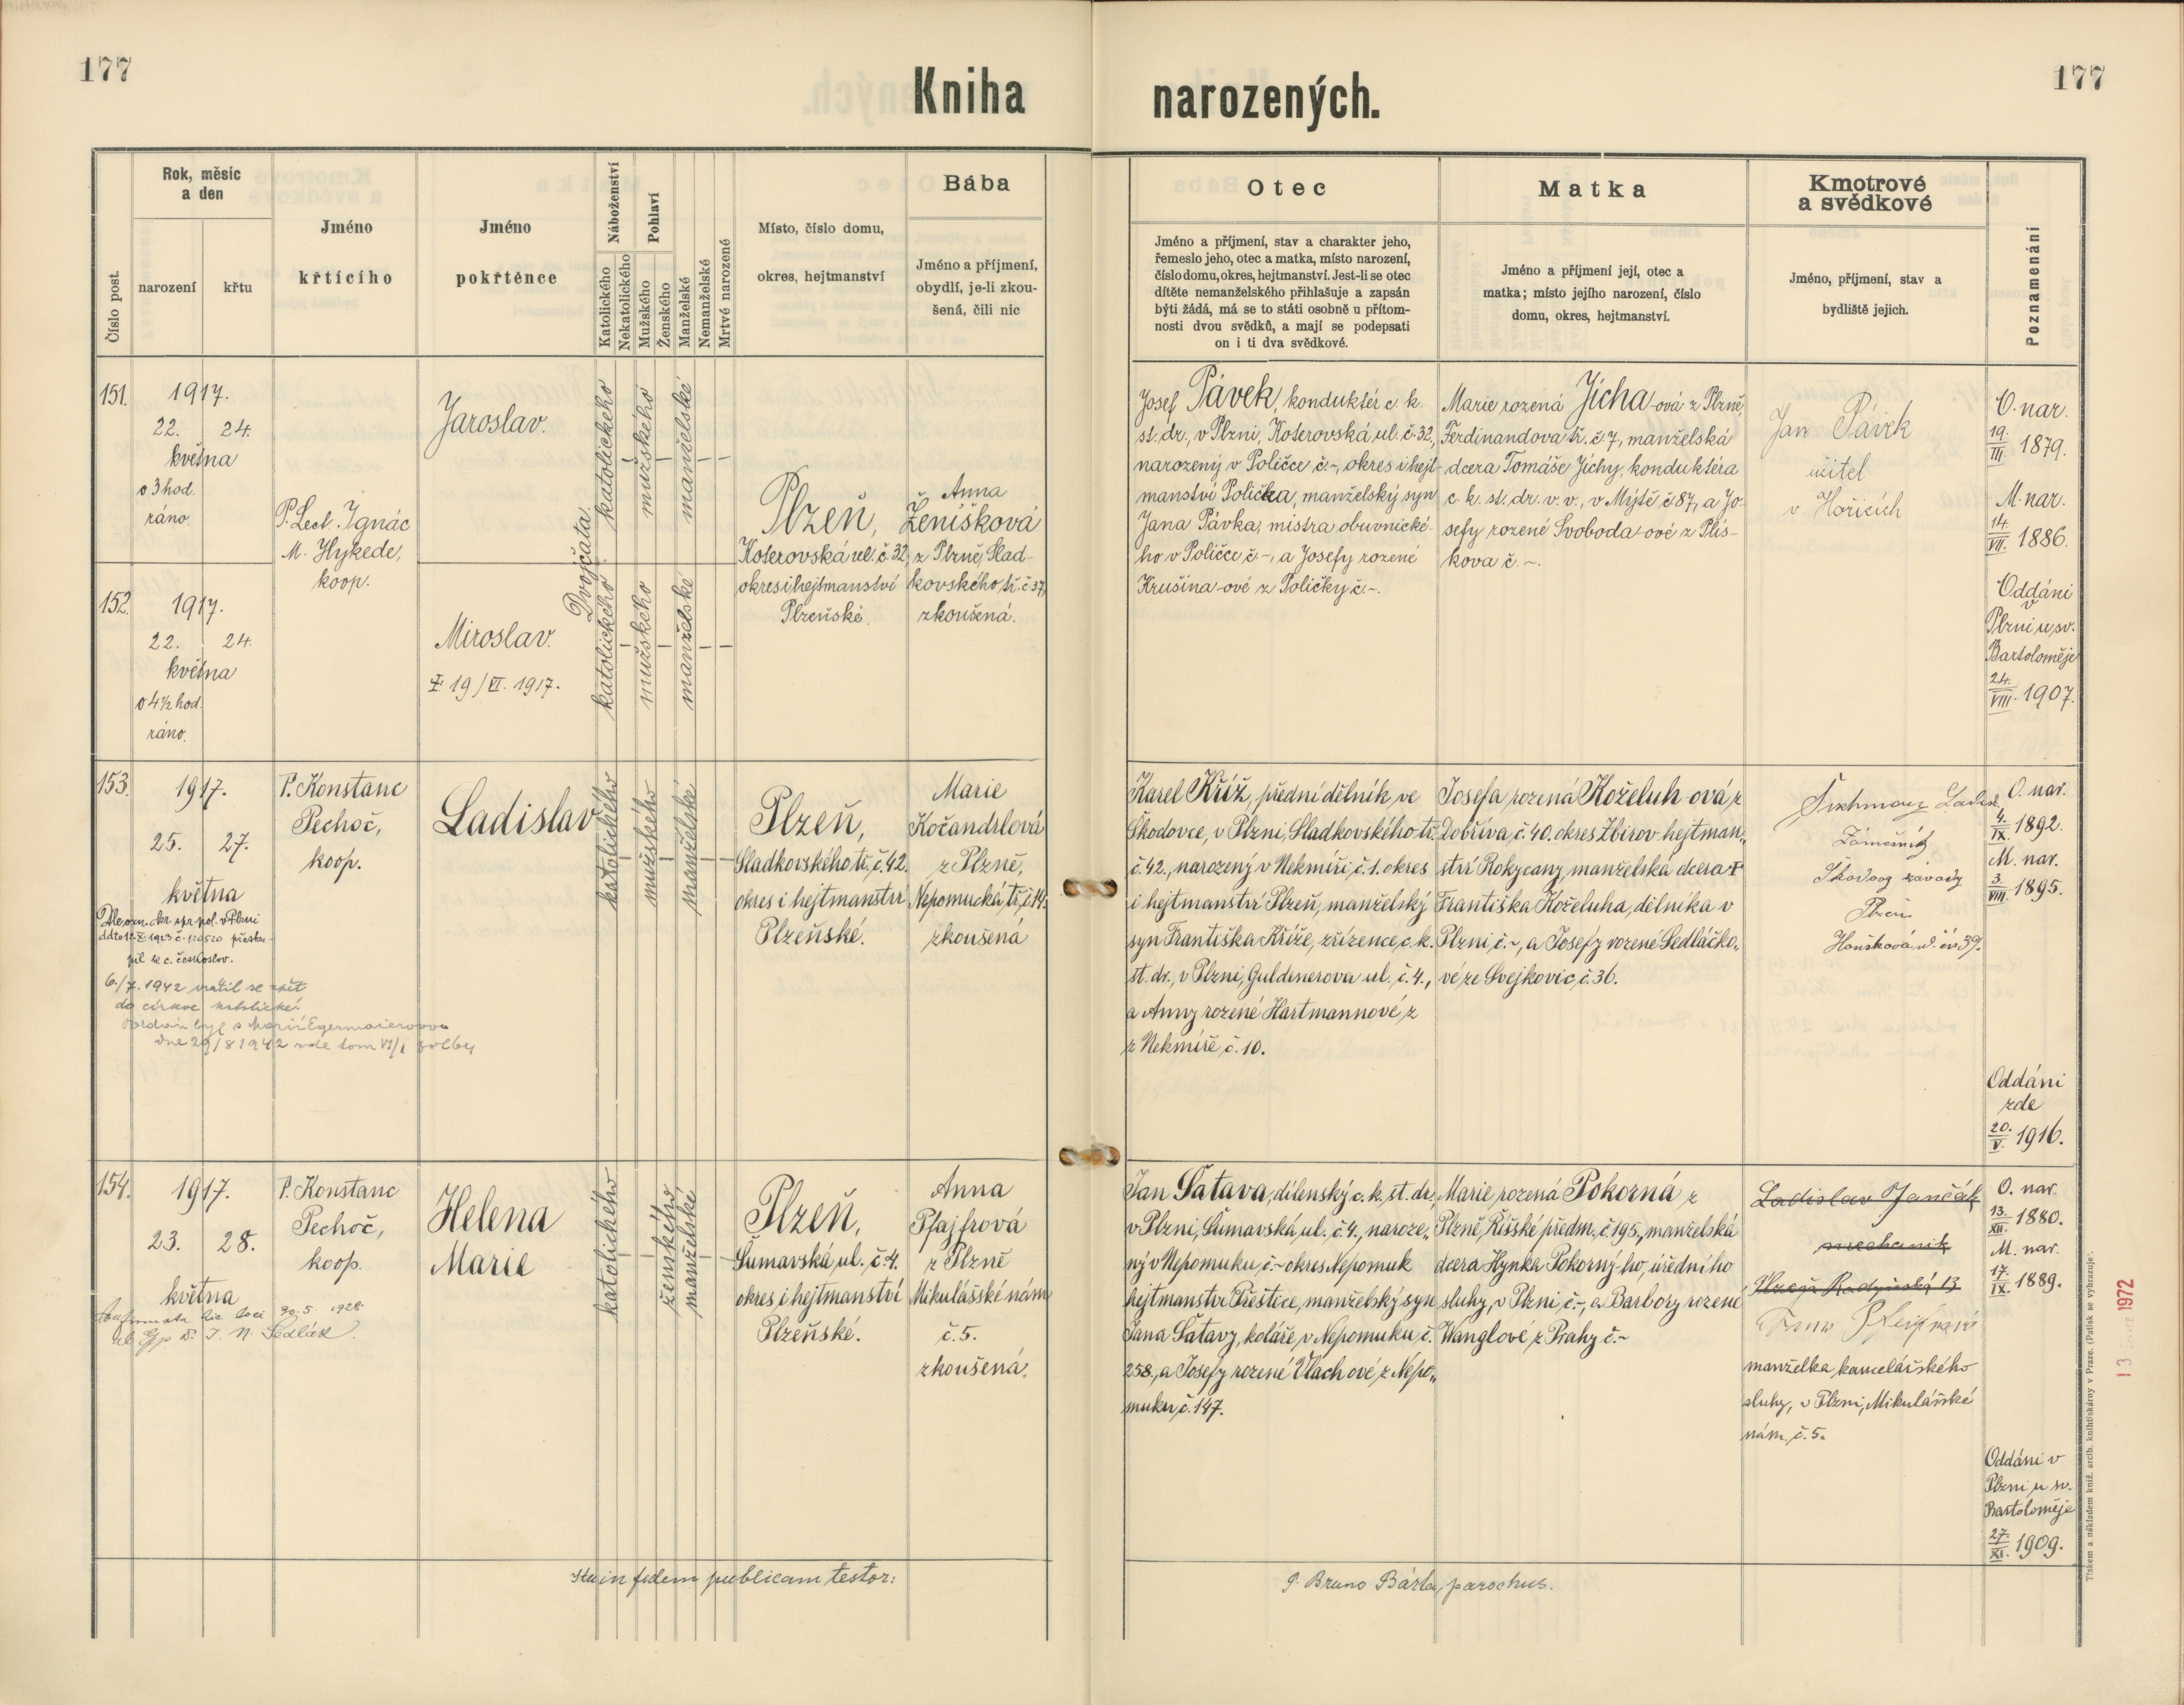 177
Kniha narozených.
177
Číslo post.
Rok, měsíc
a den
narození
křtu
Jméno
křtícího
Jméno
pokřtěnce
Náboženství
Katolického
Nekatolického
Pohlaví
Mužského
Ženského
Manželské
Nemanželské
Mrtvě narozené
Místo, číslo domu,
okres, hejtmanství
Bába
Jméno a příjmení,
obydlí, je-li zkou-
šená, čili nic
Otec
Jméno a příjmení, stav a charakter jeho,
řemeslo jeho, otec a matka, místo narození,
číslo domu, okres, hejtmanství. Jest-li se otec
dítěte nemanželského přihlašuje a zapsán
býti žádá, má se to státi osobně u přítom-
nosti dvou svědků, a mají se podepsati
on i ti dva svědkové.
Matka
Jméno a příjmení její, otec a
matka; místo jejího narození, číslo
domu, okres, hejtmanství.
Kmotrové
a svědkové
Jméno, příjmení, stav a
bydliště jejich.
Poznamenání
151.
1917.
22. 24.
května
o 3 hod.
ráno.
P. Lect. Ignác
M. Hykede,
koop.
Jaroslav.
Dvojčata.
katolického
mužského
manželské
Plzeň,
Koterovská ul. č. 32,
okres i hejtmanství
Plzeňské.
Anna
Ženíšková
z Plzně, Slad-
kovského tř. č. 37,
zkoušená.
Josef Pávek, konduktér c. k.
st. dr., v Plzni, Koterovská ul. č. 32,
narozený v Poličce č. -, okres i hejt-
manství Polička, manželský syn
Jana Pávka, mistra obuvnické-
ho v Poličce č. -, a Josefy rozené
Krušina-ové z Poličky č. -.
Marie rozená Jícha-ová z Plzně,
Ferdinandova tř. č. 7, manželská
dcera Tomáše Jíchy, konduktéra
c. k. st. dr. v. v., v Mýtě č. 87, a Jo-
sefy rozené Svoboda-ové z Plís-
kova č. -.
Jan Pávek
učitel
v Hořicích
O. nar.
19./III. 1879.
M. nar.
14./VII. 1886.
Oddáni
v
Plzni u sv.
Bartoloměje
24./VIII. 1907.
152.
1917.
22. 24.
května
o 4½ hod.
ráno.
Miroslav.
19/VI. 1917.
katolického
mužského
manželské
153.
1917.
25. 27.
května
P. Konstanc
Pechoč,
koop.
Ladislav
katolického
mužského
manželské
Plzeň,
Sladkovského tř. č. 42.
okres i hejtmanství
Plzeňské.
Marie
Kočandrlová
z Plzně,
Nepomucká tř. č. 14.
zkoušená
Karel Kříž, přední dělník ve
Škodovce, v Plzni, Sladkovského tř.
č. 42., narozený v Nekmíři č. 1. okres
i hejtmanství Plzeň, manželský
syn Františka Kříže, zřízence c. k.
st. dr., v Plzni, Guldenerova ul. č. 4.,
a Anny rozené Hartmannové z
z Nekmíře č. 10.
Josefa rozená Koželuh ová z
Dobříva č. 40. okres Zbirov hejtman„
ství Rokycany, manželská dcera †
Františka Koželuha, dělníka v
Plzni č. -, a Josefy rozené Sedláčko„
vé ze Svejkovic č. 36.
Zámečník
Plzeň
O. nar.
4./IX. 1892.
M. nar.
3./VIII. 1895.
Oddáni
zde
20./V. 1916.
6./7. 1942 vrátil se zpět
do církve katolické.
Oddán byl s Marií Egermaierovou
dne 29/8 1942 zde tom VI/1 fol 64
154.
1917.
23. 28.
května
P. Konstanc
Pechoč,
koop.
Helena
Marie
katolického
ženského
manželské
Plzeň,
Šumavská ul. č. 4.
okres i hejtmanství
Plzeňské.
Anna
Pfajfrová
z Plzně
Mikulášské nám
č. 5.
zkoušená.
Jan Šatava, dílenský c. k. st. dr.,
v Plzni, Šumavská ul. č. 4., naroze„
ný v Nepomuku č. - okres Nepomuk
hejtmanství Přeštice, manželský syn
Jana Šatavy, koláře v Nepomuku č.
258., a Josefy rozené Vlach ové z Nepo„
muku č. 147.
Marie rozená Pokorná z
Plzně, Říšské předm. č. 195., manželská
dcera Hynka Pokorný-ho, úředního
sluhy, v Plzni č. -, a Barbory rozené
Wanglové z Prahy č. -
Ladislav Jančák
mechanik
Plzeň Radyňská 13
manželka kancelářského
sluhy, v Plzni, Mikulášské
nám. č. 5.
O. nar.
13./XII. 1880.
M. nar.
17./IX. 1889.
Oddáni v
Plzni u sv.
Bartoloměje
27./XI. 1909.
Ita in fidem publicam testor:
P. Bruno Bárta, parochus.
Tiskem a nákladem kníž. arcib. knihtiskárny v Praze. (Patisk se vyhrazuje).